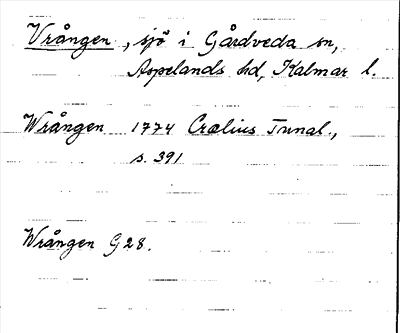 Vrången, sjö i Gårdveda sn,
Aspelands hd, Kalmar l.
Wrången 1774 Crælius Tunal.,
s. 391
Wrången G 28.